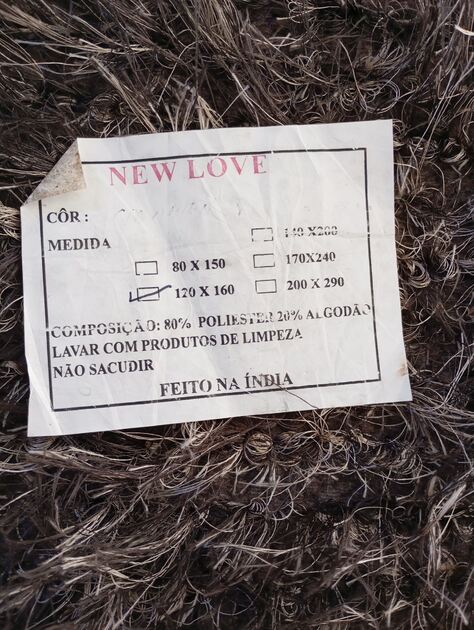 NEW LOVE
CÔR :
MEDIDA
140 X200
80 X 150
170X240
120 X 160
200 X 290
COMPOSIÇÃO: 80% POLIESTER 20% ALGODÃO
LAVAR COM PRODUTOS DE LIMPEZA
NÃO SACUDIR
FEITO NA ÍNDIA